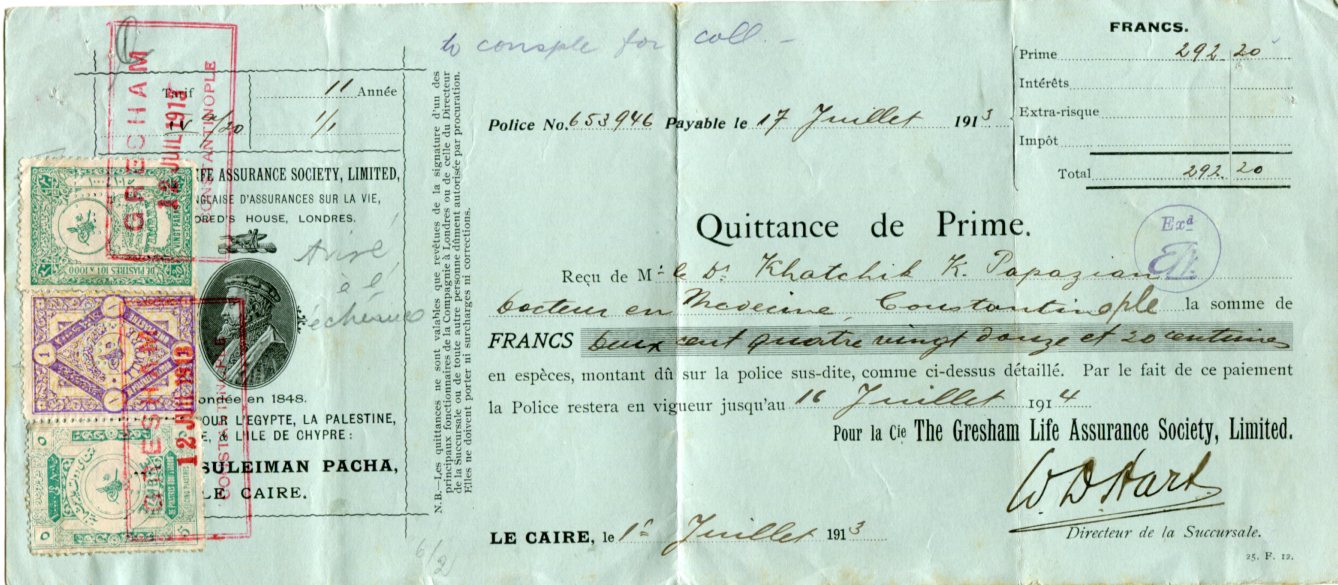 to consple for coll. –
FRANCS.
Prime 292.20
Intérêts
Extra-risque
Impôt
Total 292.20
Tarif 11 Année
1/1
Police No. 653946 Payable le 17 Juillet 1913
GRESHAM
12 JUIL 1913
CONSTANTINOPLE
IFE ASSURANCE SOCIETY, LIMITED,
NGLAISE D'ASSURANCES SUR LA VIE,
DRED'S HOUSE, LONDRES.
ondée en 1848.
POUR L'EGYPTE, LA PALESTINE,
E, & L'ILE DE CHYPRE:
SULEIMAN PACHA,
LE CAIRE.
VINGT PARAS
DE PIASTRES 101 À 1000
GRESHAM
12 JUIL 1913
CONSTANTINOPLE
N.B.—Les quittances ne sont valables que revêtues de la signature d'un des
principaux fonctionnaires de la Compagnie à Londres ou de celle du Directeur
de la Succursale ou de toute autre personne dûment autorisée par procuration.
Elles ne doivent porter ni surcharges ni corrections.
Quittance de Prime.
Exd
Reçu de Mr le Dr Khatchik K. Papazian
Docteur en Medecine, Constantinople la somme de
FRANCS Deux cent quatre vingt douze et 20 centimes
en espèces, montant dû sur la police sus-dite, comme ci-dessus détaillé. Par le fait de ce paiement
la Police restera en vigueur jusqu'au 16 Juillet 1914
Pour la Cie The Gresham Life Assurance Society, Limited.
W. D. Hart
Directeur de la Succursale.
LE CAIRE, le 1r Juillet 1913
25. F. 12.
6/2